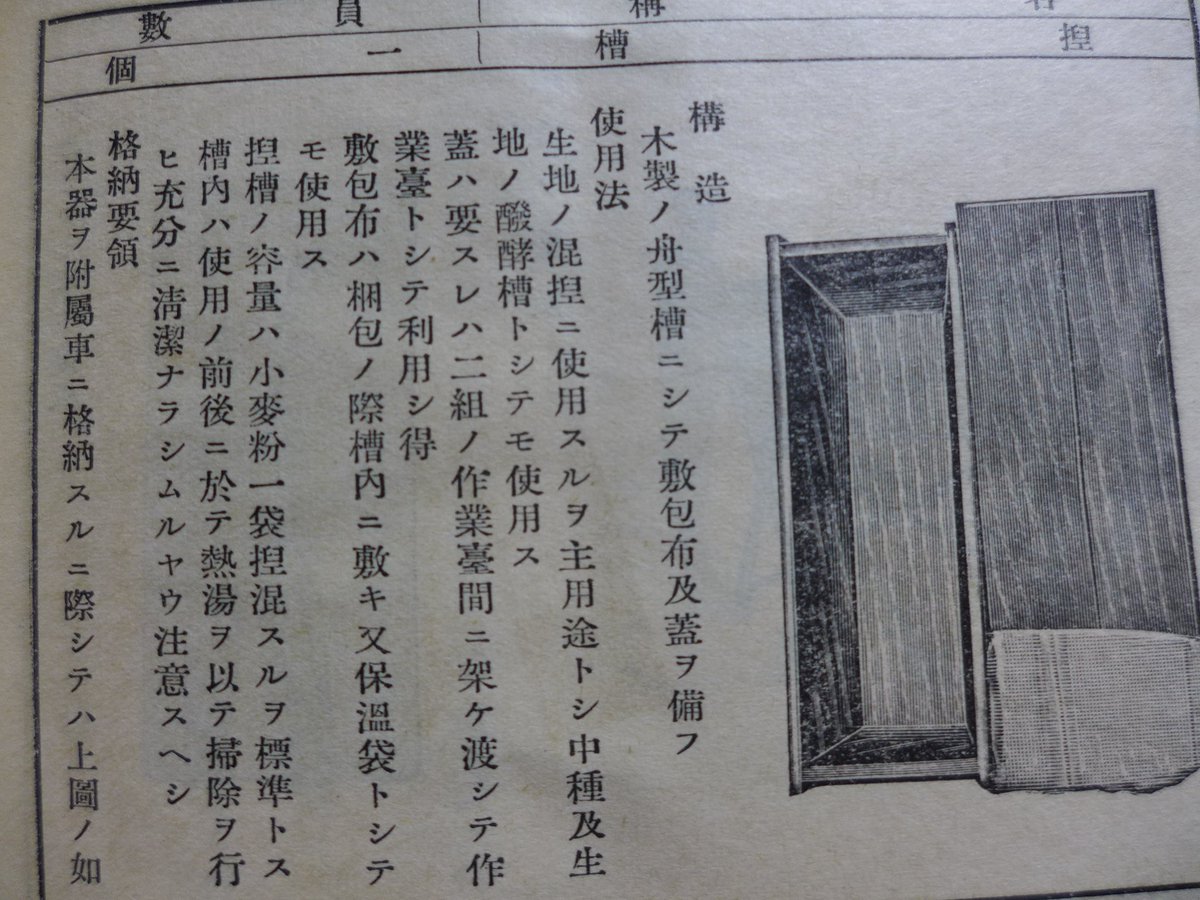 名稱
員數
捏槽
一個
構造
木製ノ舟型槽ニシテ敷包布及蓋ヲ備フ
使用法
生地ノ混捏ニ使用スルヲ主用途トシ中種及生
地ノ醱酵槽トシテモ使用ス
蓋ハ要スレハ二組ノ作業臺間ニ架ケ渡シテ作
業臺トシテ利用シ得
敷包布ハ梱包ノ際槽內ニ敷キ又保溫袋トシテ
モ使用ス
捏槽ノ容量ハ小麥粉一袋捏混スルヲ標準トス
槽內ハ使用ノ前後ニ於テ熱湯ヲ以テ掃除ヲ行
ヒ充分ニ淸潔ナラシムルヤウ注意スヘシ
格納要領
本器ヲ附屬車ニ格納スルニ際シテハ上圖ノ如